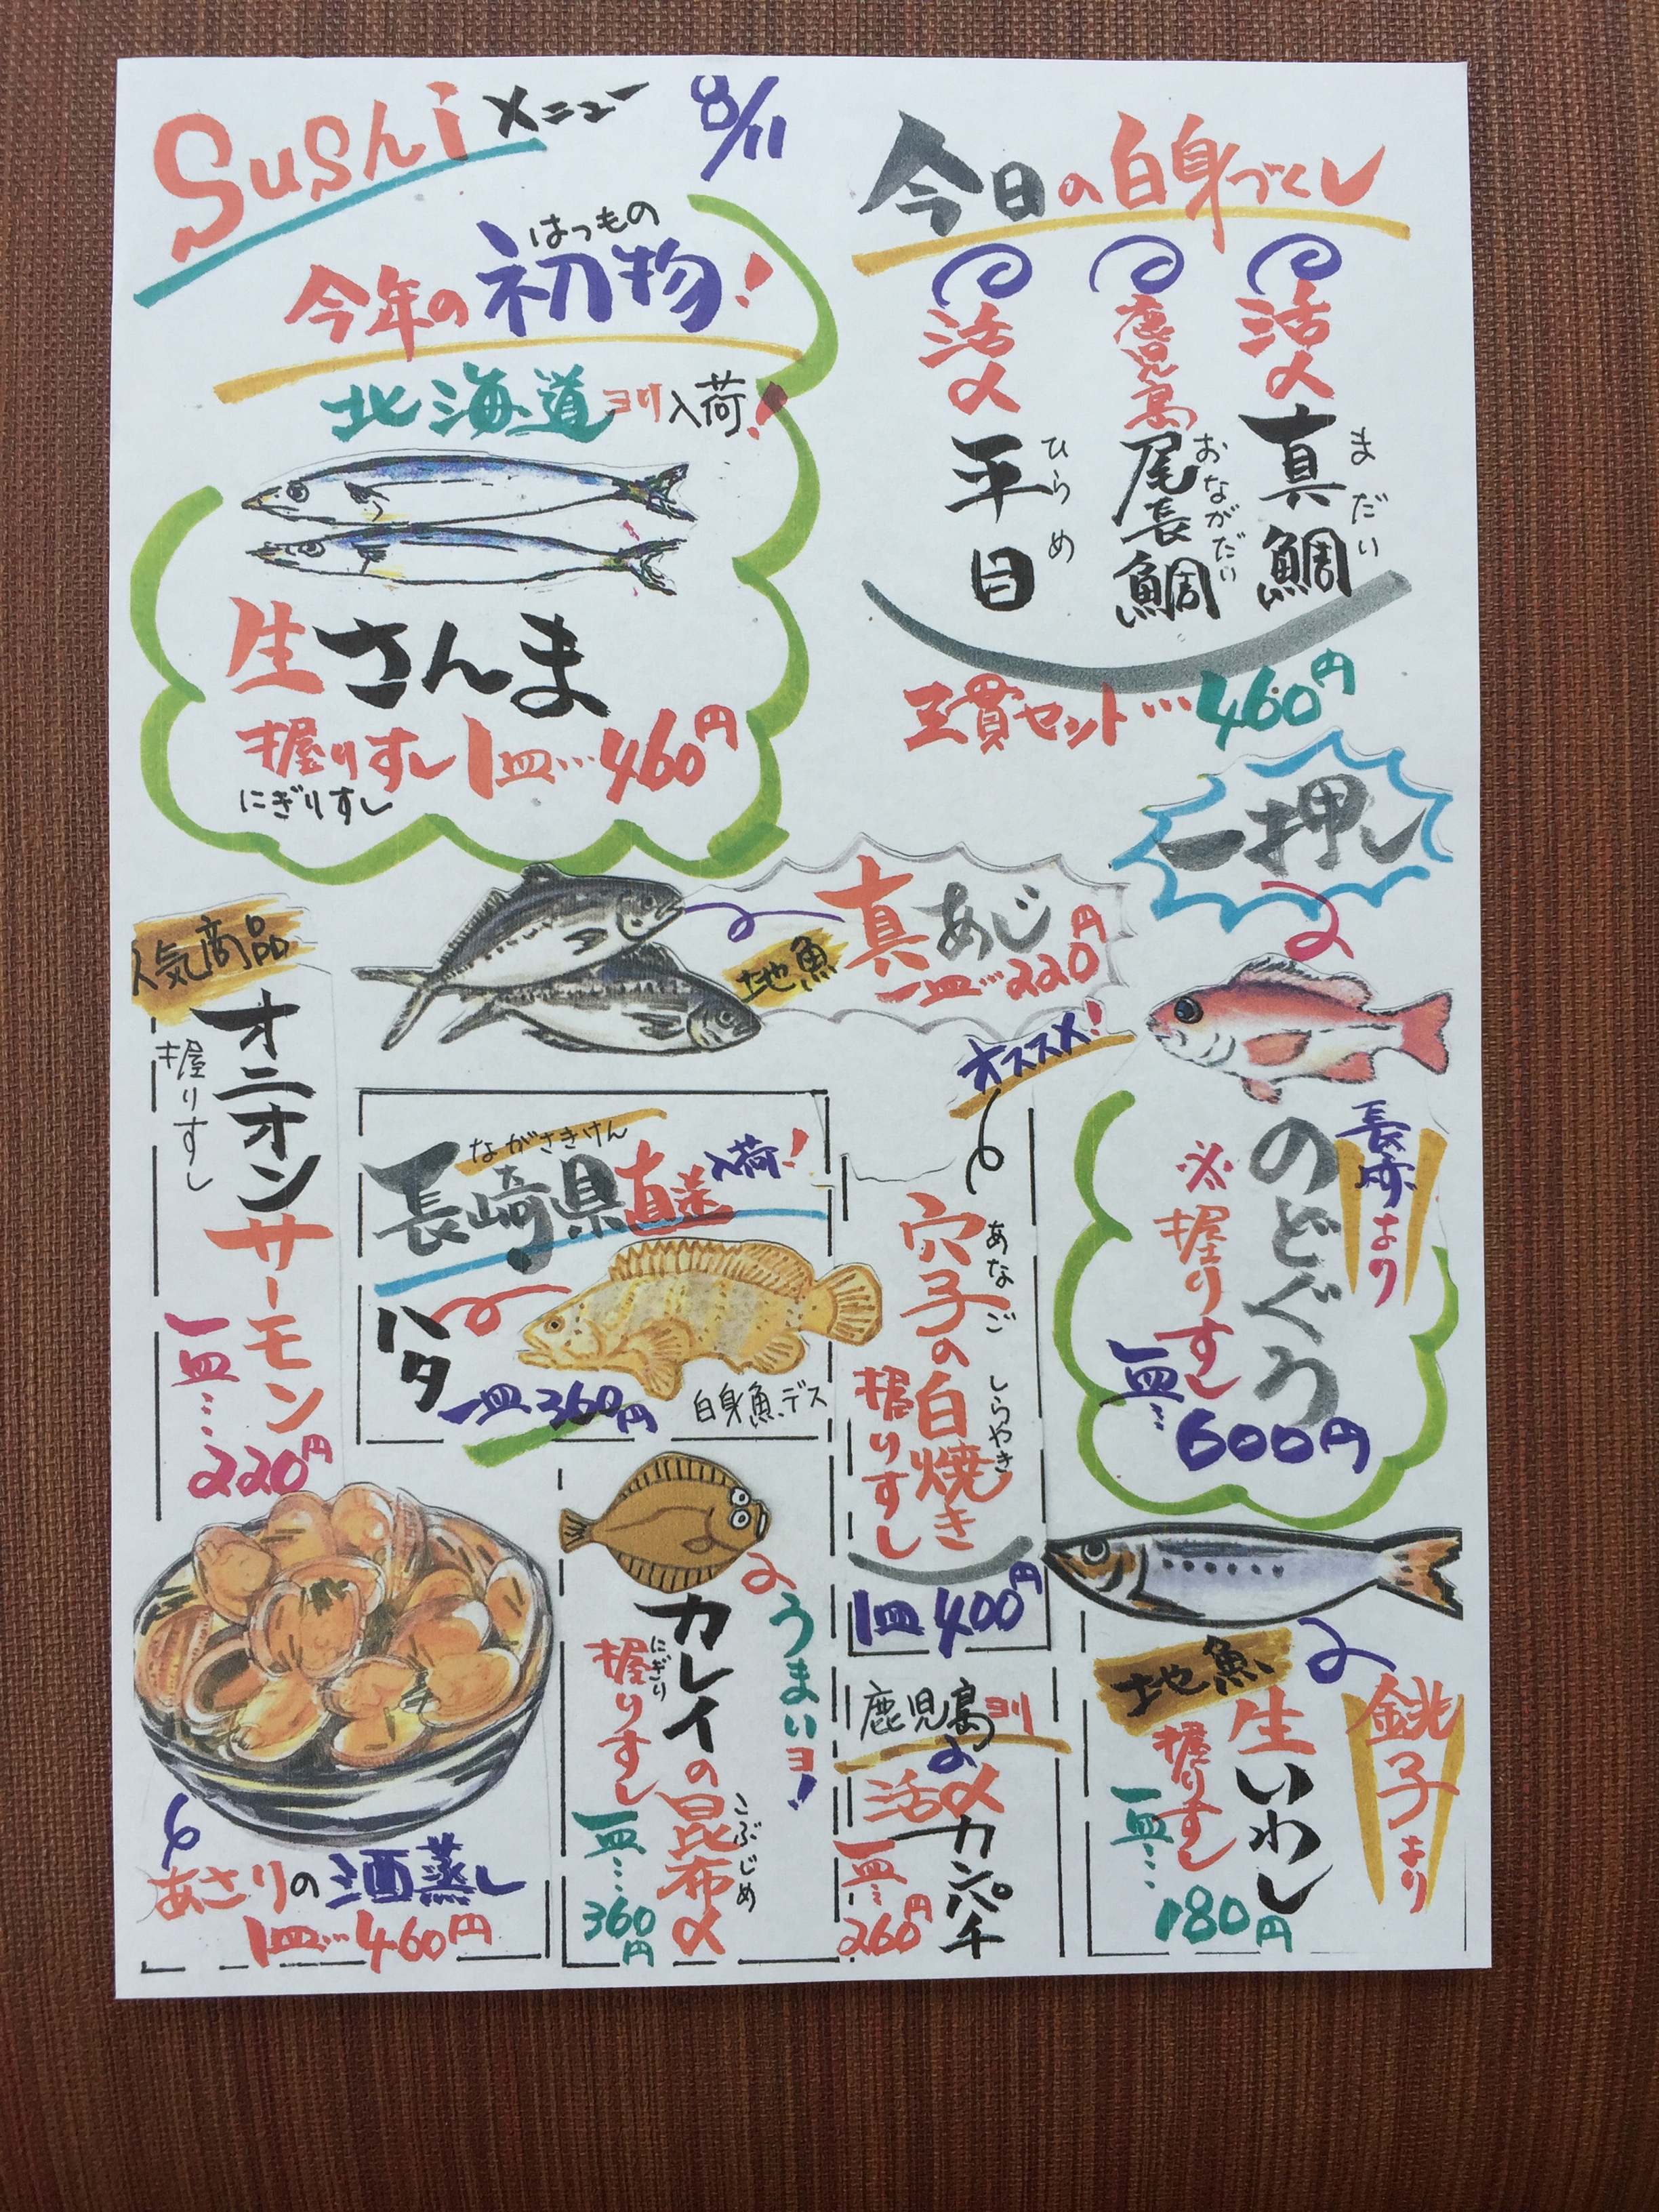 Sushi メニュー 8/11
今年の初物!
はつもの
北海道ヨリ入荷!
生さんま
握りすし1皿…460円
にぎりすし
今日の白身づくし
活〆真鯛
まだい
鹿児島尾長鯛
おながだい
活〆平目
ひらめ
三貫セット…460円
一押し
長崎より
のどぐろ
※握りすし
一皿…600円
地魚
真あじ
一皿…220円
人気商品
オニオンサーモン
握りすし
一皿…220円
長崎県直送入荷!
ながさきけん
ハタ
一皿360円
白身魚デス
オススメ!
穴子の白焼き
あなご しらやき
握りすし
1皿400円
あさりの酒蒸し
1皿…460円
うまいヨ!
カレイの昆布〆
こぶじめ
握りすし
にぎり
一皿…360円
鹿児島ヨリ
活〆カンパチ
一皿…260円
銚子より
地魚
生いわし
握りすし
一皿…180円